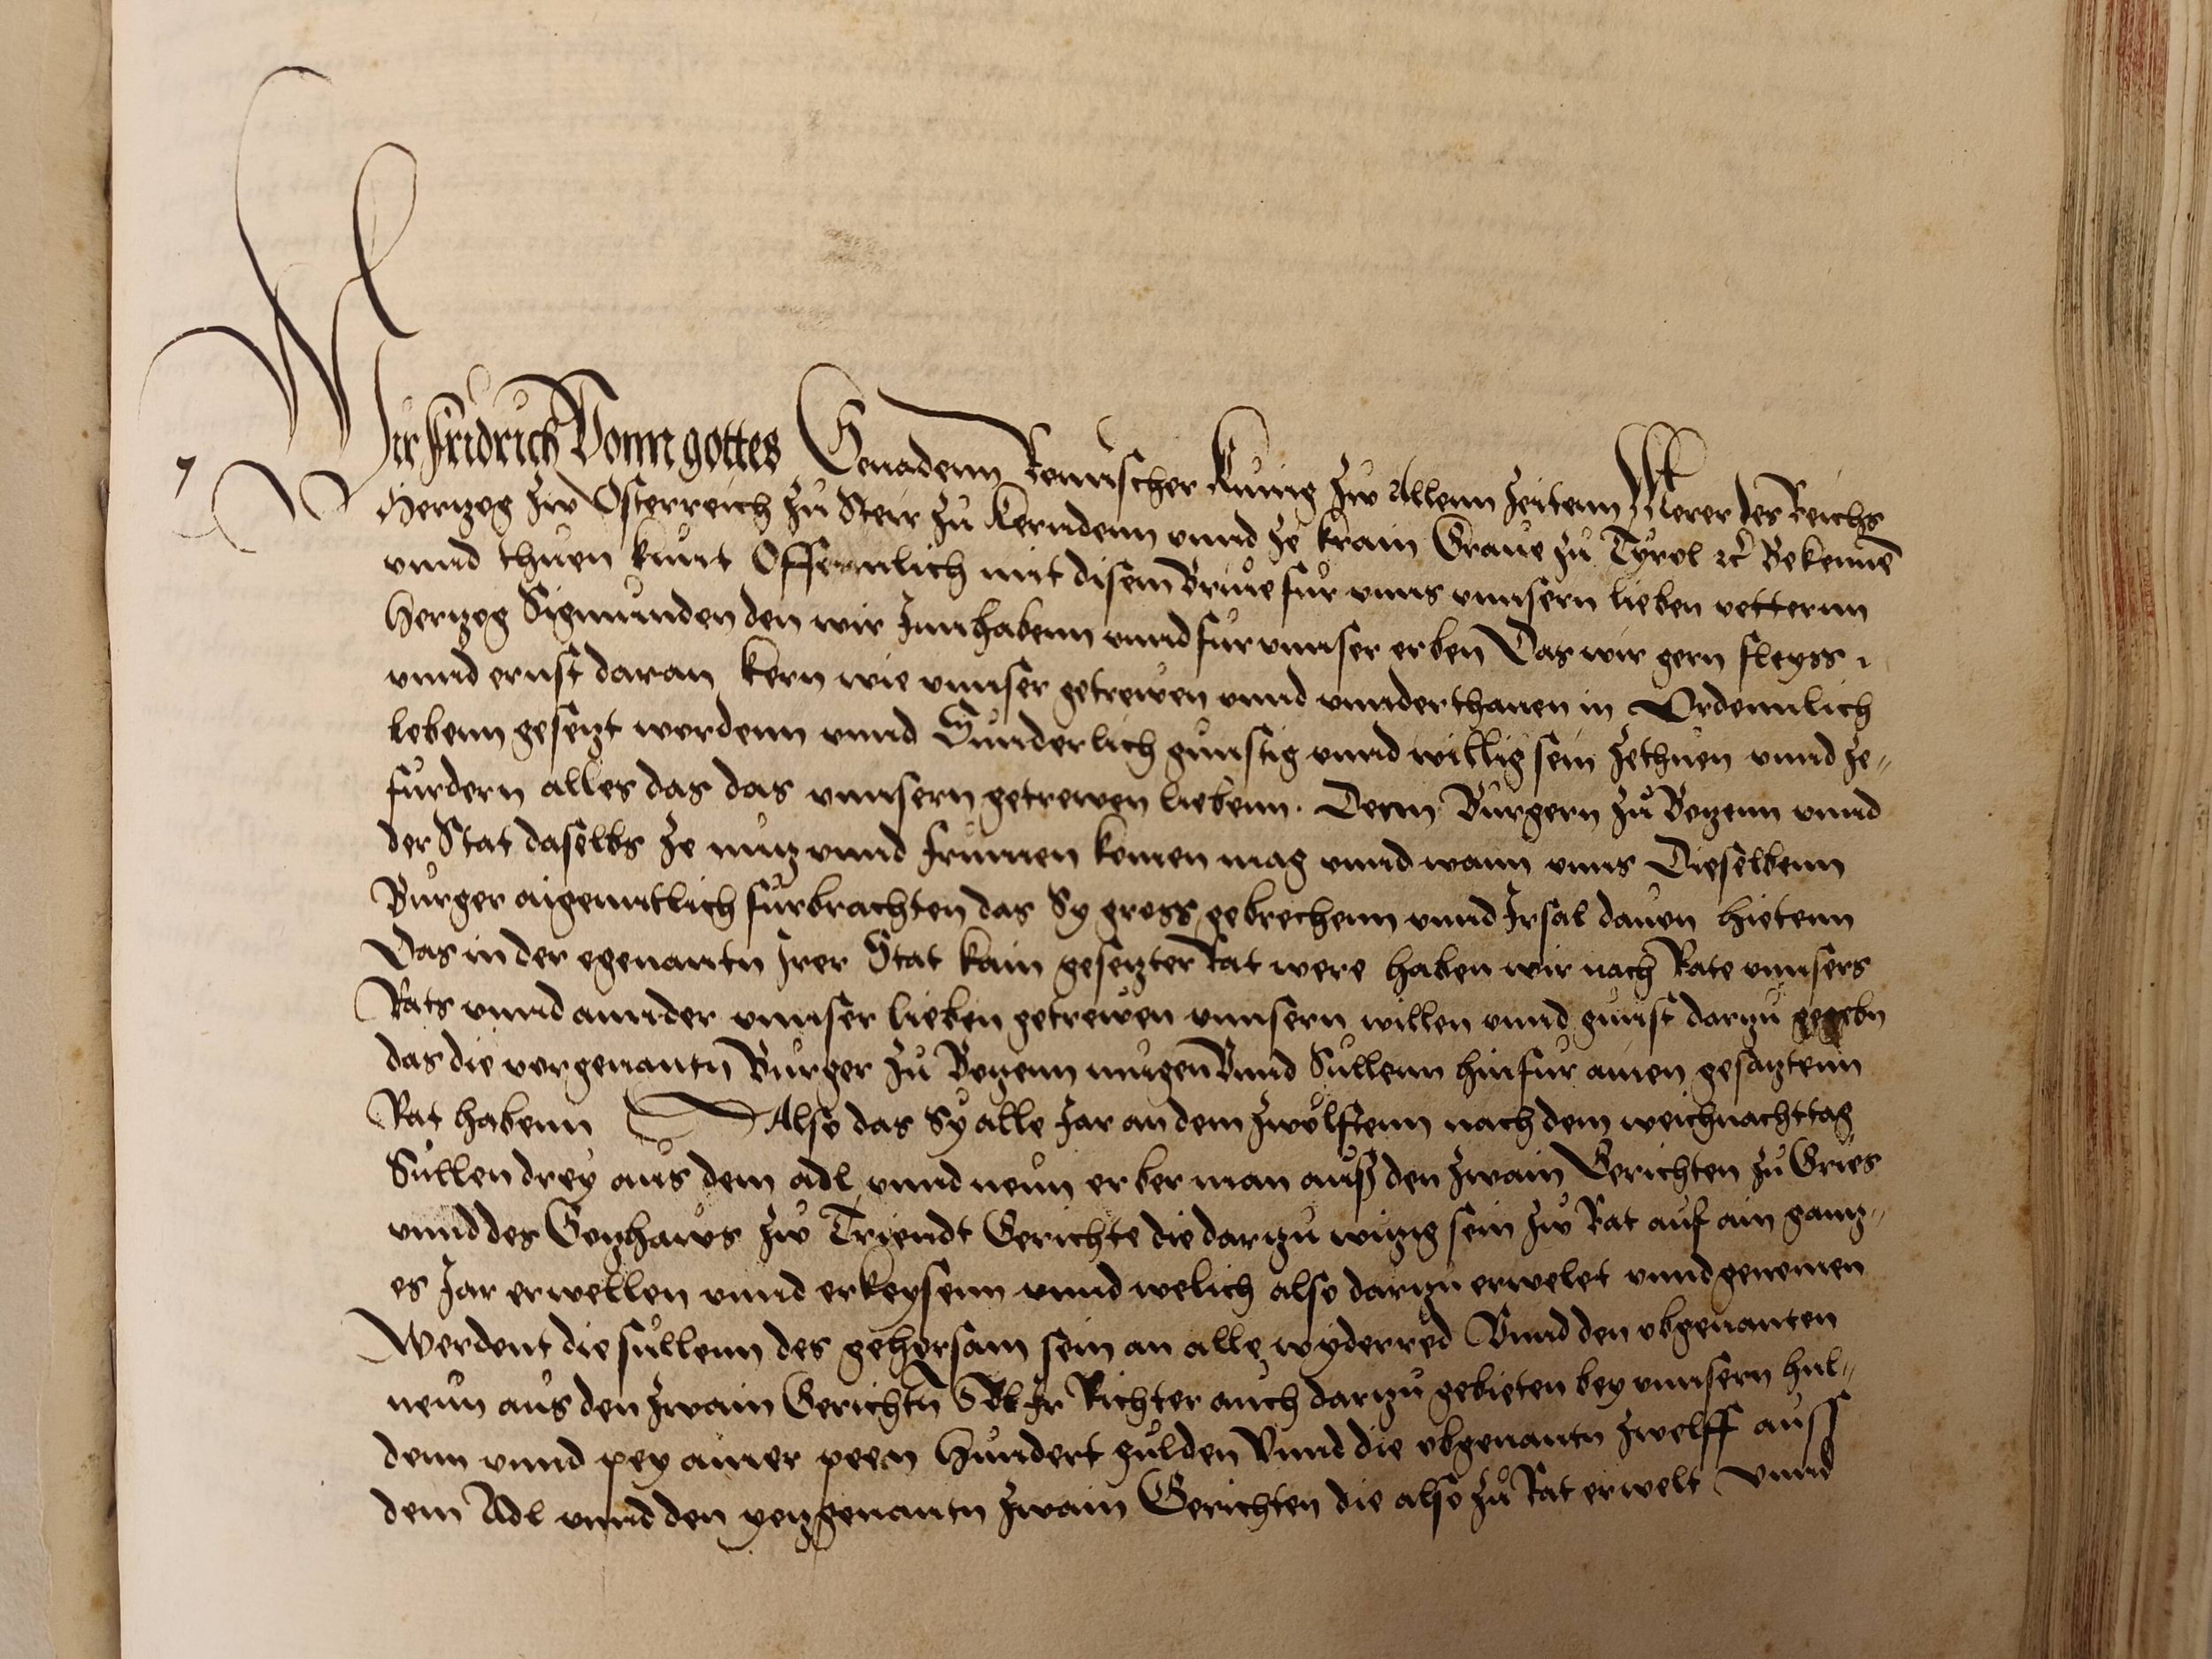 Wir Fridrich Vonn gottes Genadenn Romischer Kunig zw Allenn Zeitenn Merer des Reichs
Hertzog zw Osterreich zu Steir zu Kerndenn vnnd ze krain Graue zu Tyrol ꝛc Bekennē
vnnd thuen kunt Offennlich mit disem briue fur vnns vnnsern lieben vetternn
Hertzog Sigmunden den wir Innhabenn vnnd fur vnnser erben Das wir gern fleyss
vnnd ernst daran kern wie vnnser getrewen vnnd vnnderthanen in Ordennlich
lebenn gesetzt werdenn vnnd Sunderlich gunstig vnnd willig sein zethuen vnnd ze„
furdern alles das das vnnsern getrewen liebenn. Denn Burgern zu Botzenn vnnd
der Stat daselbs ze nutz vnnd frumen komen mag vnnd wann vnns Dieselbenn
Burger aigenntlich furbrachten das Sy gross gebrechenn vnnd Irsal dauon hietenn
Das in der egenantn Irer Stat kain gesetzter Rat were haben wir nach Rate vnnsers
Rats vnnd annder vnnser lieben getrewen vnnsern willen vnnd gunst dartzu gegebn
das die vorgenantn Burger zu Botzenn mugen Vnnd Sullenn hinfur ainen gesatztenn
Rat habenn Also das Sy alle Jar an dem zwolftenn nach dem weichnachttag
Sullen drey aus dem adl vnnd neun erber man auß den zwain Gerichten zu Gries
vnnd des Gotzhaws zw Triendt Gerichte die dartzu witzig sein zw Rat auf ain gantz„
es Jar erwellen vnnd erkeysenn vnnd welich also dartzu erwelet vnnd genomen
Werdent die sullenn des gehorsam sein an alle wyderred Vnnd den obgenanten
neun aus den zwain Gerichtn Sol Ir Richter auch dartzu gebieten bey vnnsern hul„
denn vnnd pey ainer peen Hundert gulden Vnnd die obgenantn zwelff auss
dem Adl vnnd den yetzgenantn zwain Gerichten die also zu Rat erwelt vnnd